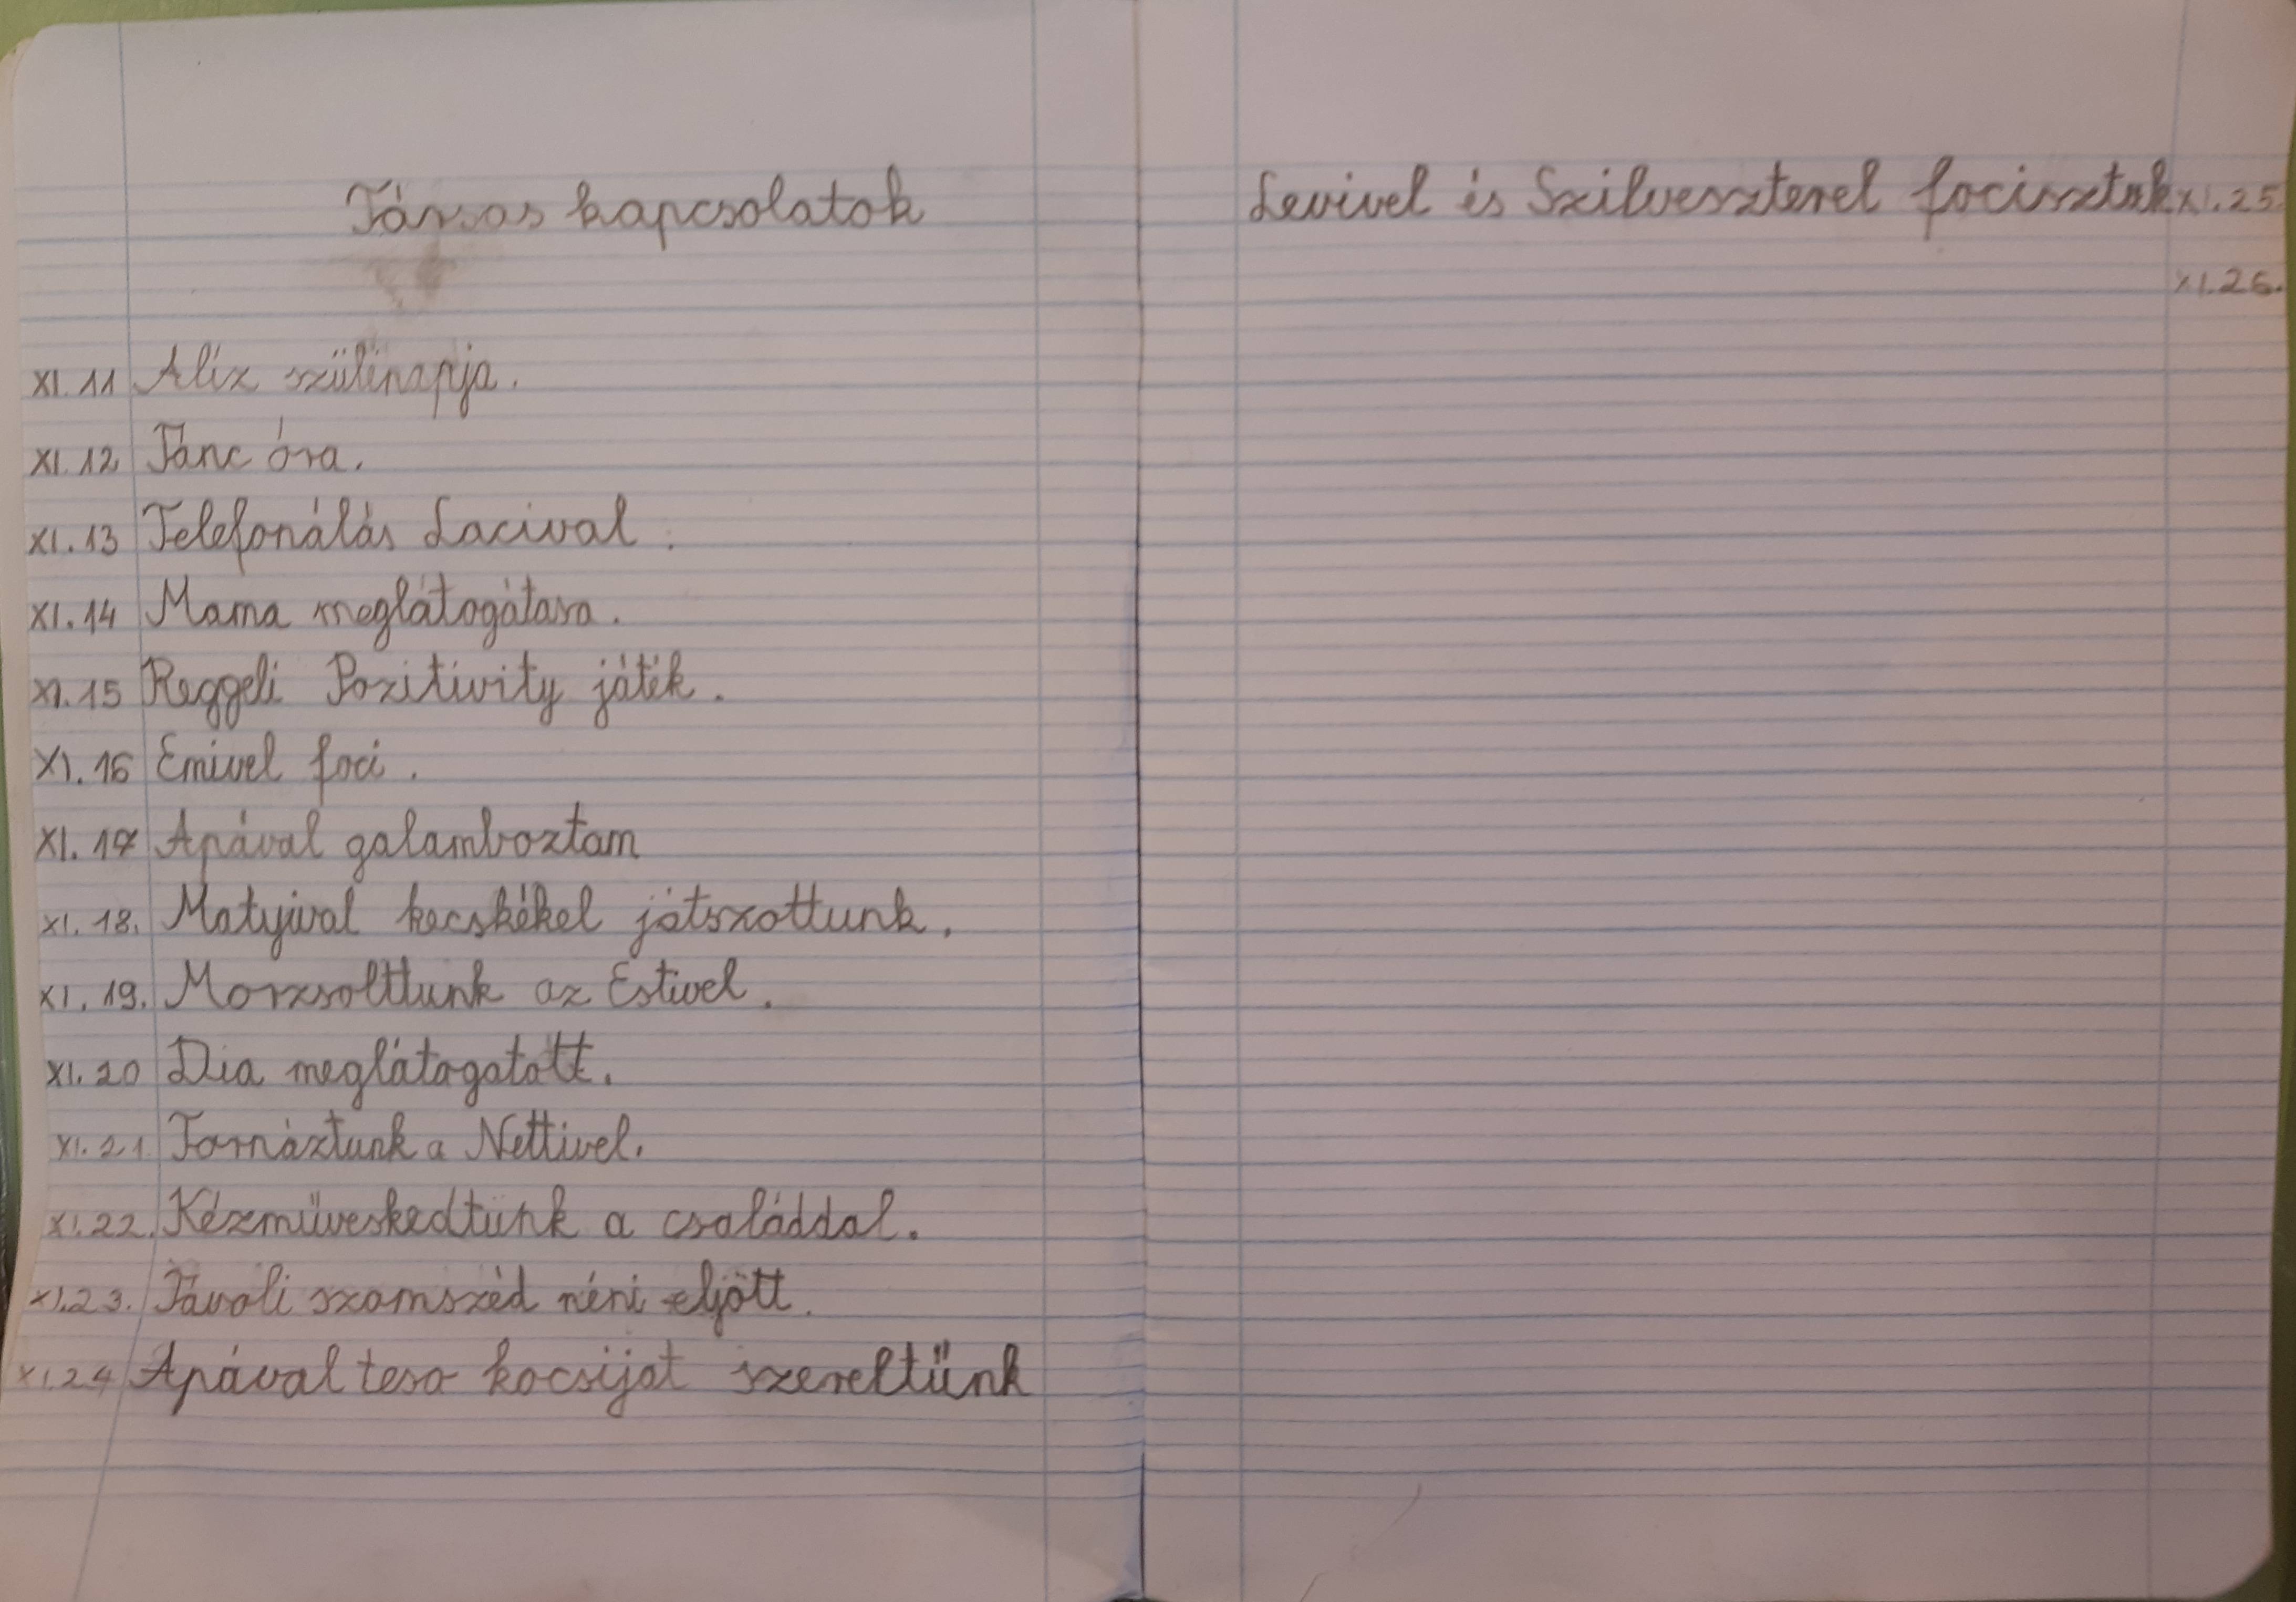 Társas kapcsolatok
XI. 11 Alíz szülinapja.
XI. 12 Tánc óra.
XI. 13 Telefonálás Lacival.
XI. 14 Mama meglátogátasa.
XI. 15 Reggeli Pozitivity játék.
XI. 16 Emivel foci.
XI. 17 Apával galamboztam
XI. 18. Matyival kecskékel játszottunk.
XI. 19. Morzsolttunk az Estivel.
XI. 20 Dia meglátogatott.
XI. 21. Tornáztunk a Nettivel.
XI. 22. Kézmüveskedtünk a családdal.
XI. 23. Távoli szomszéd néni eljött.
XI. 24 Apával teso kocsijat szereltünk
Levivel és Szilveszterel focisztak XI. 25.
XI. 26.